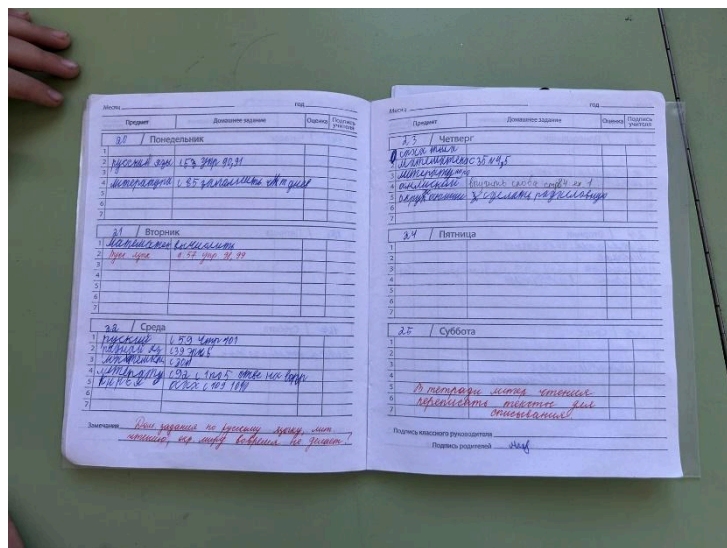 Месяц год
Предмет Домашнее задание Оценка Подпись учителя
20 Понедельник
1
2 русский язы с 53 упр 90,91
3
4 литература с 85 заполнить дн
5
6
7
21 Вторник
1 математи вычислить
2 Русс язык с 57 упр 98, 99
3
4
5
6
7
22 Среда
1 руский с 59 упр 101
2 родной яз с 39 упр 5
3 математи с 201
4 литерату с 92 с 1 по 5 отве на вопр
5 с 109
6
7
Замечания Дом. задания по русскому языку, лит.
чтению, окр миру вовремя не делает!
Месяц год
Предмет Домашнее задание Оценка Подпись учителя
23 Четверг
1
2 математика с 35 №4,5
3 литература
4 английский слова стр 84 1
5 окружающи сделать
6
7
24 Пятница
1
2
3
4
5
6
7
25 Суббота
1
2
3
4
5 В тетради литер чтения
6 переписать тексты для
7 списывания
Подпись классного руководителя
Подпись родителей